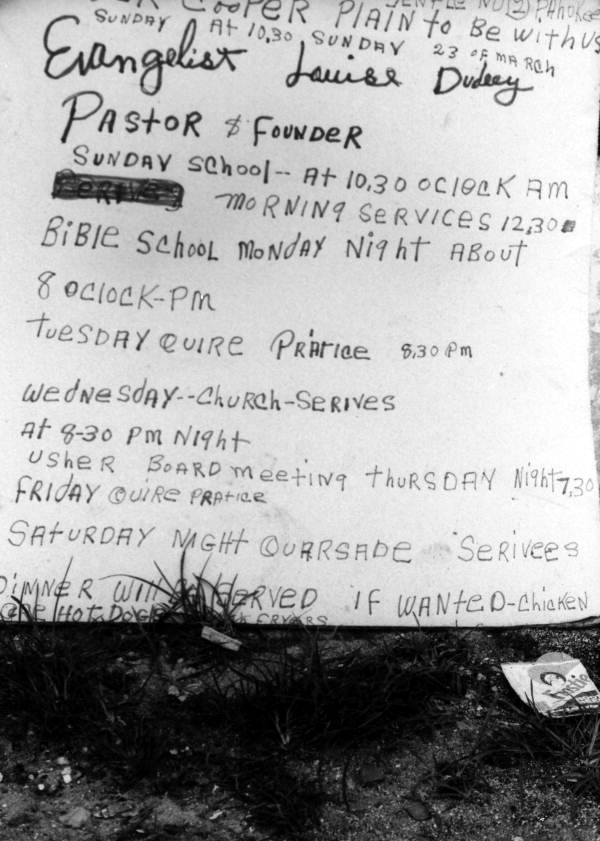 COOPER PLAIN to Be WITH US
SUNDAY At 10,30 SUNDAY 23 OF MARCH
Evangelist Louise Dudley
PAStOR & FOUNDER
SUNDAY SCHool-- At 10,30 OCLOCK AM
MORNING SeRVICES 12,30
BiBlE SCHOOL MONDAY Night ABOUt
8 OCLOCK-PM
tUESDAY QUIRE PRATICE 8,30 PM
WedNeSdAY--CHURCH-SeRIVES
At 8-30 PM NIGHt
USHeR BOARD meeting tHURSDAY Night 7,30
FRIDAY QUIRe PRATICE
SATURDAY NIGHt QUARSADE SERIVEES
DINNER WIll SERVED IF WANTED-CHICKEN
HOT DOGS FRYERS